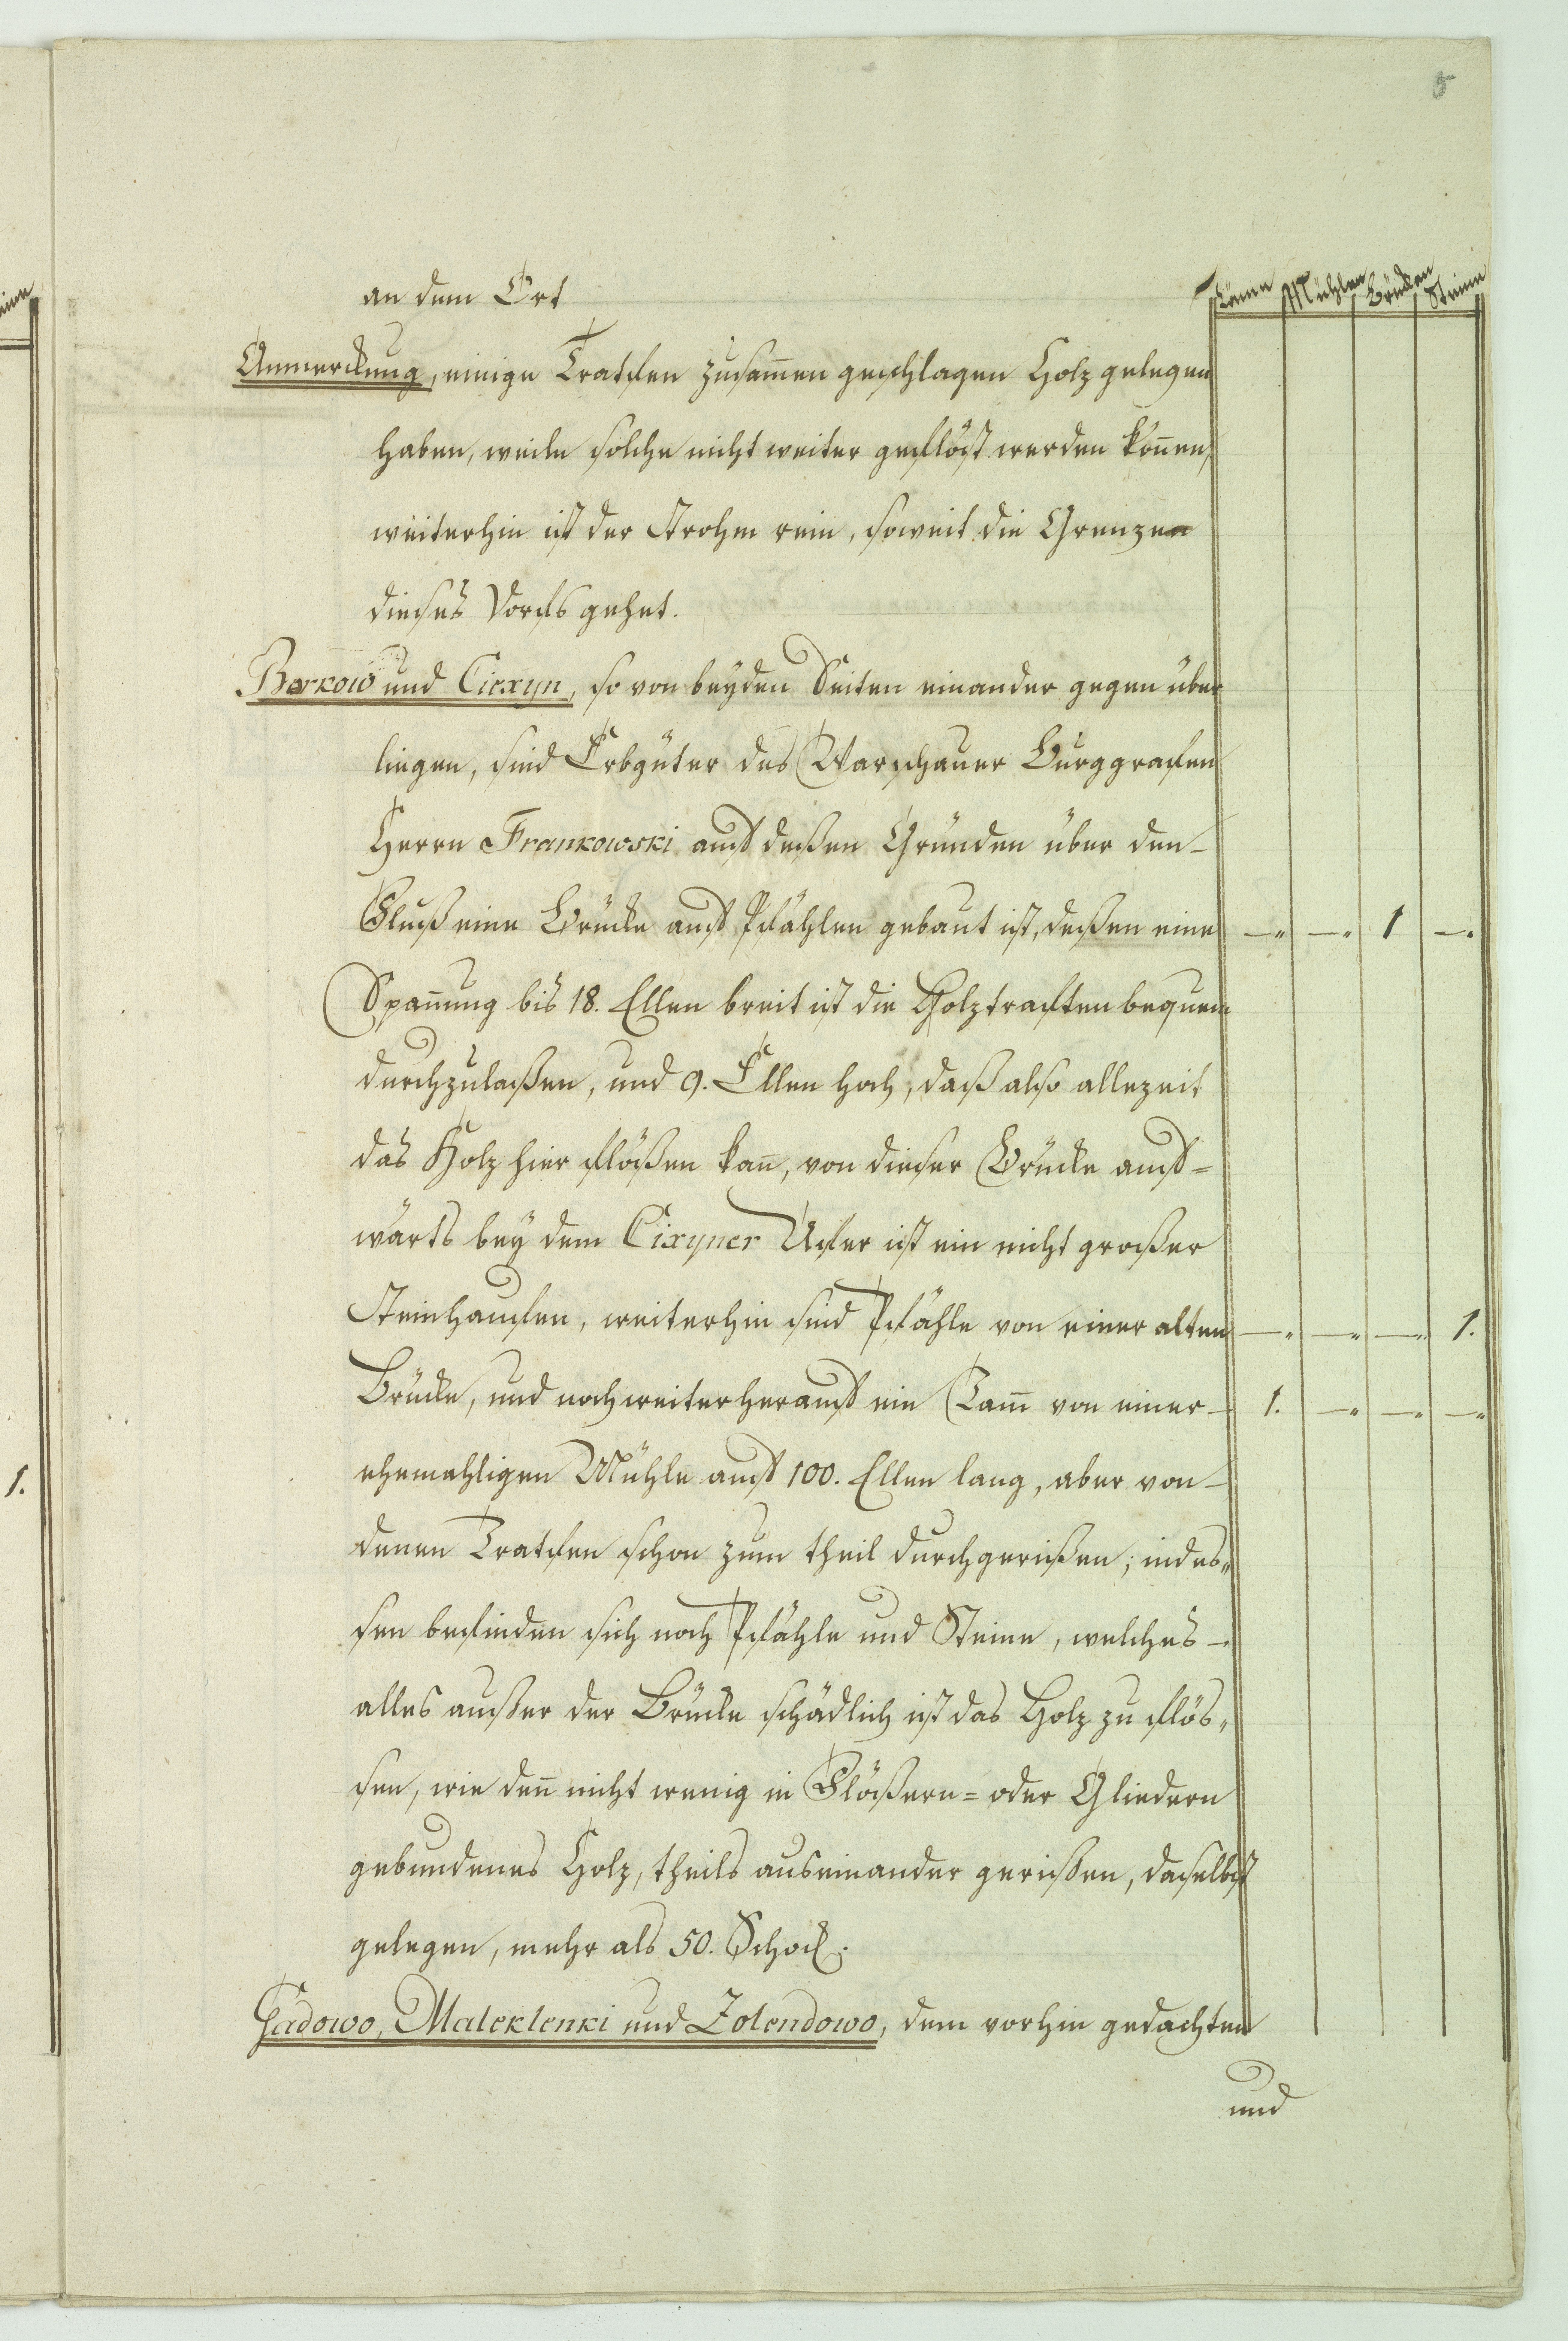 5
an dem Ort
Täme Mühlen Brücken Steine
Anmerckung, einige Tratfen zusam̄en geschlagen Holz gelegen
haben, weiln solche nicht weiter geflöst werden kön̄en,
weiterhin ist der Strohm rein, soweit die Grenzen
dieses Dorfs gehet.
Borkow und Ciexyn, so von beyden Seiten einander gegen über
liegen, sind Erbgüter des Warschauer Burggrafen
Herrn Frankowski auf deßen Gründen über den
Fluß eine Brücke auf Pfählen gebaut ist, deßen eine — — 1 —
Span̄ung bis 18. Ellen breit ist die Holztraften bequem
durchzulaßen, und 9. Ellen hoch, daß also allezeit
das Holz hier flößen kan̄, von dieser Brücke auf=
wärts bey dem Cixyner Ufer ist ein nicht großer
Steinhaufen, weiterhin sind Pfähle von einer alten — — — 1.
Brücke, und noch weiter herauf ein Tam̄ von einer 1. — — —
ehemahligen Mühle auf 100. Ellen lang, aber von
denen Tratfen schon zum theil durchgerißen; indes„
sen befinden sich noch Pfähle und Steine, welches
alles außer der Brücke schädlich ist das Holz zu flös„
sen, wie den̄ nicht wenig in Flößern= oder Gliedern
gebundenes Holz, theils auseinander gerißen, daselbst
gelegen, mehr als 50. Schock.
Gadowo, Maleklenki und Zolendowo, dem vorhin gedachten
und
1.